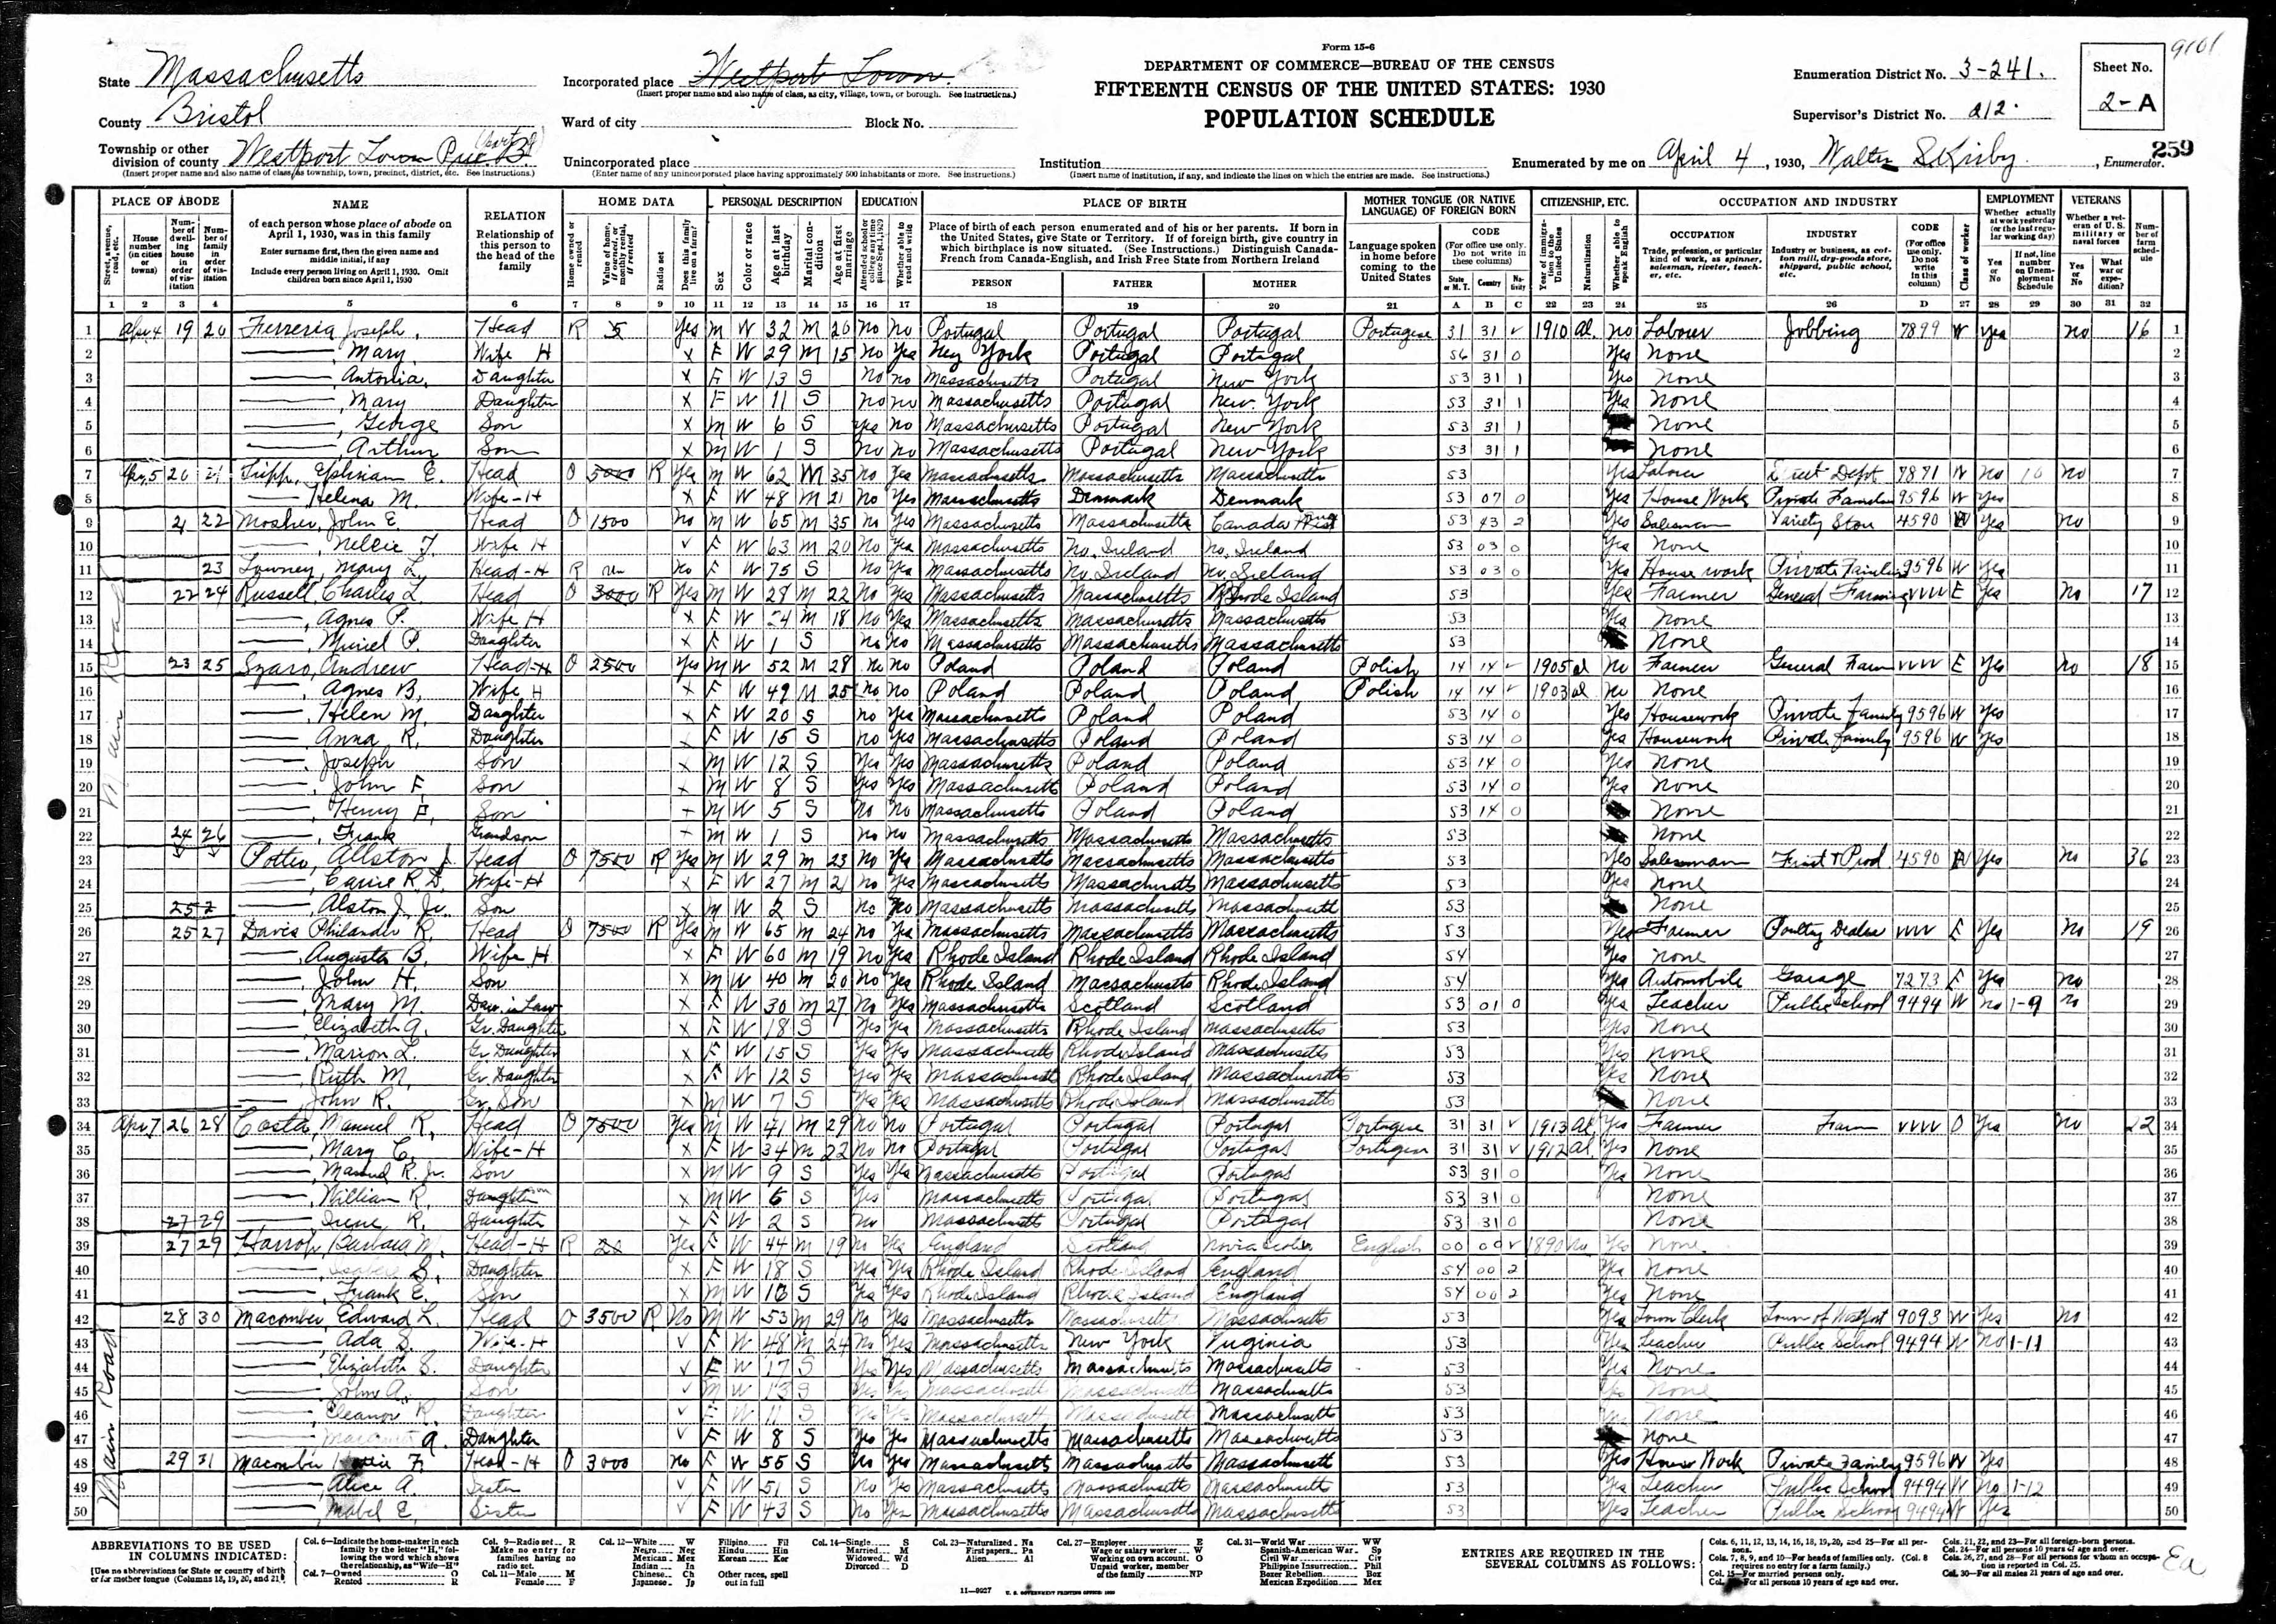 Form 15-6
9101
State Massachusetts
Incorporated place Westport Town
(Insert proper name and also name of class, as city, village, town, or borough. See instructions.)
DEPARTMENT OF COMMERCE—BUREAU OF THE CENSUS
FIFTEENTH CENSUS OF THE UNITED STATES: 1930
POPULATION SCHEDULE
Enumeration District No. 3-241.
Sheet No.
2-A
County Bristol
Ward of city
Block No.
Supervisor's District No. 212
Township or other division of county Westport Town
(Insert proper name and also name of class, as township, town, precinct, district, etc. See instructions.)
Unincorporated place
(Enter name of any unincorporated place having approximately 500 inhabitants or more. See instructions.)
Institution
(Insert name of institution, if any, and indicate the lines on which the entries are made. See instructions.)
Enumerated by me on April 4, 1930, Walter S Kirby, Enumerator.
259
PLACE OF ABODE NAME RELATION HOME DATA PERSONAL DESCRIPTION EDUCATION PLACE OF BIRTH MOTHER TONGUE (OR NATIVE LANGUAGE) OF FOREIGN BORN CITIZENSHIP, ETC. OCCUPATION AND INDUSTRY EMPLOYMENT VETERANS
1 Apr 4 19 20 Ferreria Joseph, Head R 5 Yes M W 32 M 20 No No Portugal Portugal Portugal Portugese 31 31 V 1910 Al. no Labour Jobbing 7899 W Yes no 16 1
2 Mary, Wife H X F W 29 M 15 No Yes New York Portugal Portugal 56 31 0 Yes None 2
3 Antonia, Daughter X F W 13 S No no Massachusetts Portugal New York 53 31 1 Yes None 3
4 Mary Daughter X F W 11 S no no Massachusetts Portugal New York 53 31 1 Yes None 4
5 George Son X M W 6 S Yes No Massachusetts Portugal New York 53 31 1 None 5
6 Arthur Son X M W 1 S No No Massachusetts Portugal New York 53 31 1 None 6
7 Apr 5 20 21 Tripp, Ephriam E. Head O 3000 R Yes M W 62 M 35 No Yes Massachusetts Massachusetts Massachusetts 53 Yes Labour Street Dept 7871 W No 10 no 7
8 Helena M. Wife-H X F W 48 M 21 No Yes Massachusetts Denmark Denmark 53 07 0 Yes House Work Private Families 9596 W Yes 8
9 21 22 Mosher, John E. Head O 1500 No M W 65 M 35 No Yes Massachusetts Massachusetts Canada 53 43 2 Yes Salesman Variety Store 4590 W Yes No 9
10 Nellie F. Wife H F W 63 M 20 No Yes Massachusetts No. Ireland No. Ireland 53 03 0 Yes None 10
11 23 Mary L. Head-H R no F W 75 S No Yes Massachusetts No Ireland No. Ireland 53 03 0 Yes House work Private Families 9596 W Yes 11
12 22 24 Russell, Charles L. Head O 3000 R Yes M W 28 M 22 No Yes Massachusetts Massachusetts Rhode Island 53 Yes Farmer General Farming VVVV E Yes No 17 12
13 Agnes P. Wife H X F W 24 M 18 No Yes Massachusetts Massachusetts Massachusetts 53 Yes None 13
14 Muriel P. Daughter X F W 1 S no No Massachusetts Massachusetts Massachusetts 53 None 14
15 23 25 Szaro, Andrew Head-H O 2500 Yes M W 52 M 28 No No Poland Poland Poland Polish 14 14 V 1905 al No Farmer General Farm VVVV E Yes no 18 15
16 Agnes B. Wife H X F W 49 M 25 No No Poland Poland Poland Polish 14 14 V 1903 al No None 16
17 Helen M. Daughter X F W 20 S no Yes Massachusetts Poland Poland 53 14 0 Yes Housework Private Family 9596 W Yes 17
18 Anna R. Daughter X F W 15 S no Yes Massachusetts Poland Poland 53 14 0 Yes Housework Private Family 9596 W Yes 18
19 Joseph Son X M W 12 S Yes Yes Massachusetts Poland Poland 53 14 0 Yes None 19
20 John F. Son X M W 8 S Yes Yes Massachusetts Poland Poland 53 14 0 Yes None 20
21 Henry E. Son X M W 5 S No No Massachusetts Poland Poland 53 14 0 None 21
22 24 26 Frank Grandson M W 1 S No no Massachusetts Massachusetts Massachusetts 53 None 22
23 Potter, Allston J. Head O 7500 R Yes M W 29 M 23 No Yes Massachusetts Massachusetts Massachusetts 53 Yes Salesman Fruit & Prod 4590 W Yes No 36 23
24 Carrie R D. Wife-H X F W 27 M 21 No Yes Massachusetts Massachusetts Massachusetts 53 Yes None 24
25 Alston J. Jr. Son X M W 2 S no No Massachusetts Massachusetts Massachusetts 53 None 25
26 25 27 Davis Philander R. Head O 7500 R Yes M W 65 M 24 No Yes Massachusetts Massachusetts Massachusetts 53 Yes Farmer Poultry Dealer VVVV E Yes No 19 26
27 Augusta B. Wife H X F W 60 M 19 No Yes Rhode Island Rhode Island Rhode Island 54 Yes None 27
28 John H. Son X M W 40 M 20 No Yes Rhode Island Massachusetts Rhode Island 54 Yes Automobile Garage 7273 E Yes No 28
29 Mary M. Dau. in Law X F W 30 M 27 No Yes Massachusetts Scotland Scotland 53 01 0 Yes Teacher Public School 9494 W no 1-9 no 29
30 Elizabeth A. Gr. Daughter X F W 18 S Yes Yes Massachusetts Rhode Island Massachusetts 53 Yes None 30
31 Marion L. Gr. Daughter X F W 15 S Yes Yes Massachusetts Rhode Island Massachusetts 53 Yes None 31
32 Ruth M. Gr. Daughter X F W 12 S Yes Yes Massachusetts Rhode Island Massachusetts 53 Yes None 32
33 John R. Gr. Son X M W 7 S Yes Yes Massachusetts Rhode Island Massachusetts 53 None 33
34 Apr 7 26 28 Costa, Manuel R. Head O 7500 Yes M W 41 M 29 No No Portugal Portugal Portugal Portugese 31 31 V 1913 Al Yes Farmer Farm VVVV O Yes no 22 34
35 Mary C. Wife-H X F W 34 M 22 No No Portugal Portugal Portugal Portugese 31 31 V 1912 Al. Yes None 35
36 Manuel R. Jr. Son X M W 9 S Yes Yes Massachusetts Portugal Portugal 53 31 0 Yes None 36
37 William R. X M W 6 S Yes Massachusetts Portugal Portugal 53 31 0 None 37
38 27 29 Irene R. Daughter X F W 2 S no Massachusetts Portugal Portugal 53 31 0 None 38
39 27 29 Harrop, Barbara Head-H R 20 Yes F W 44 M 19 No Yes England Scotland Novia Scotia English 00 00 V 1890 na Yes None. 39
40 S. Daughter X F W 18 S Yes Yes Rhode Island Rhode Island England 54 00 2 Yes None 40
41 Frank E. Son X M W 16 S Yes Yes Rhode Island Rhode Island England 54 00 2 Yes None 41
42 28 30 Macomber, Edward L. Head O 3500 R No M W 53 M 29 No Yes Massachusetts Massachusetts Massachusetts 53 Yes Town Clerk Town of Westport 9093 W Yes No 42
43 Ada S. Wife-H F W 48 M 24 No Yes Massachusetts New York Virginia 53 Yes Teacher Public School 9494 W No 1-11 43
44 Elizabeth S. Daughter F W 17 S Yes Yes Massachusetts Massachusetts Massachusetts 53 Yes None 44
45 John A. Son M W 13 S Yes Yes Massachusetts Massachusetts Massachusetts 53 Yes None 45
46 Eleanor R. Daughter F W 11 S Yes Yes Massachusetts Massachusetts Massachusetts 53 Yes None 46
47 A. Daughter F W 8 S Yes Yes Massachusetts Massachusetts Massachusetts 53 None 47
48 29 31 Macomber F. Head-H O 3000 No F W 55 S No Yes Massachusetts Massachusetts Massachusetts 53 Yes House Work Private Family 9596 W Yes 48
49 Alice A. Sister F W 51 S No Yes Massachusetts Massachusetts Massachusetts 53 Yes Teacher Public School 9494 W No 1-12 49
50 Mabel E. Sister F W 43 S No Yes Massachusetts Massachusetts Massachusetts 53 Yes Teacher Public School 9494 W Yes 50
Main Road
Main Road
ABBREVIATIONS TO BE USED IN COLUMNS INDICATED:
[Use no abbreviations for State or country of birth or for mother tongue (Columns 18, 19, 20, and 21)]
ENTRIES ARE REQUIRED IN THE SEVERAL COLUMNS AS FOLLOWS:
11—9927 U. S. GOVERNMENT PRINTING OFFICE: 1930